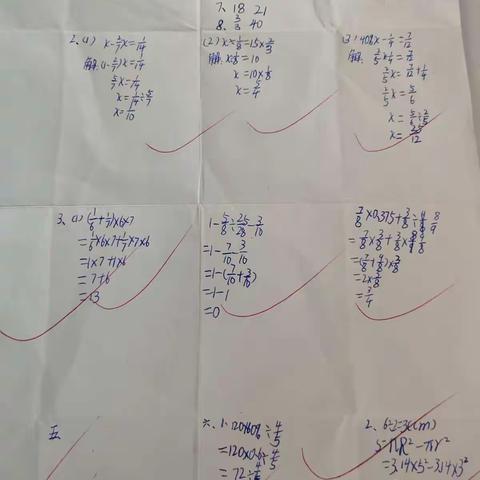 7、18 21
8、2/3 40
2、(1) x-2/7x=1/14
解:(1-2/7)x=1/14
5/7x=1/14
x=1/14÷5/7
x=1/10
(2) x÷1/8=15×2/3
解: x÷1/8=10
x=10×1/8
x=5/4
(3) 40%x-1/4=7/12
解: 2/5x-1/4=7/12
2/5x=7/12+1/4
2/5x=5/6
x=5/6÷2/5
x=25/12
3、(1) (1/6+1/7)×6×7
=1/6×6×7+1/7×7×6
=1×7+1×6
=7+6
=13
1-5/8÷25/28-3/10
=1-7/10-3/10
=1-(7/10+3/10)
=1-1
=0
7/8×0.375+3/8÷8/9
=7/8×3/8+3/8×9/8
=(7/8+9/8)×3/8
=2×3/8
=3/4
五
六、1、120×60%÷4/5
=120×0.6÷4/5
=72÷4/5
2、6÷2=3(m)
S=πR²-πr²
=3.14×5²-3.14×3²